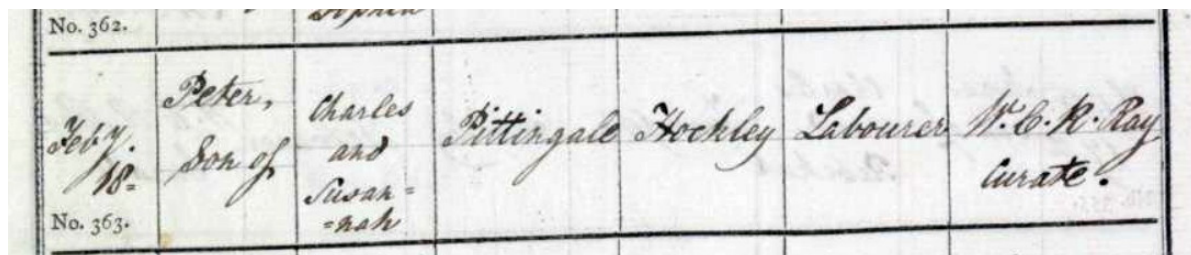 No. 362.
Feby.
18=
No. 363.
Peter,
Son of
Charles
and
Susan=
=nah
Pittingale
Hockley
Labourer
W. C. R. Ray
Curate.